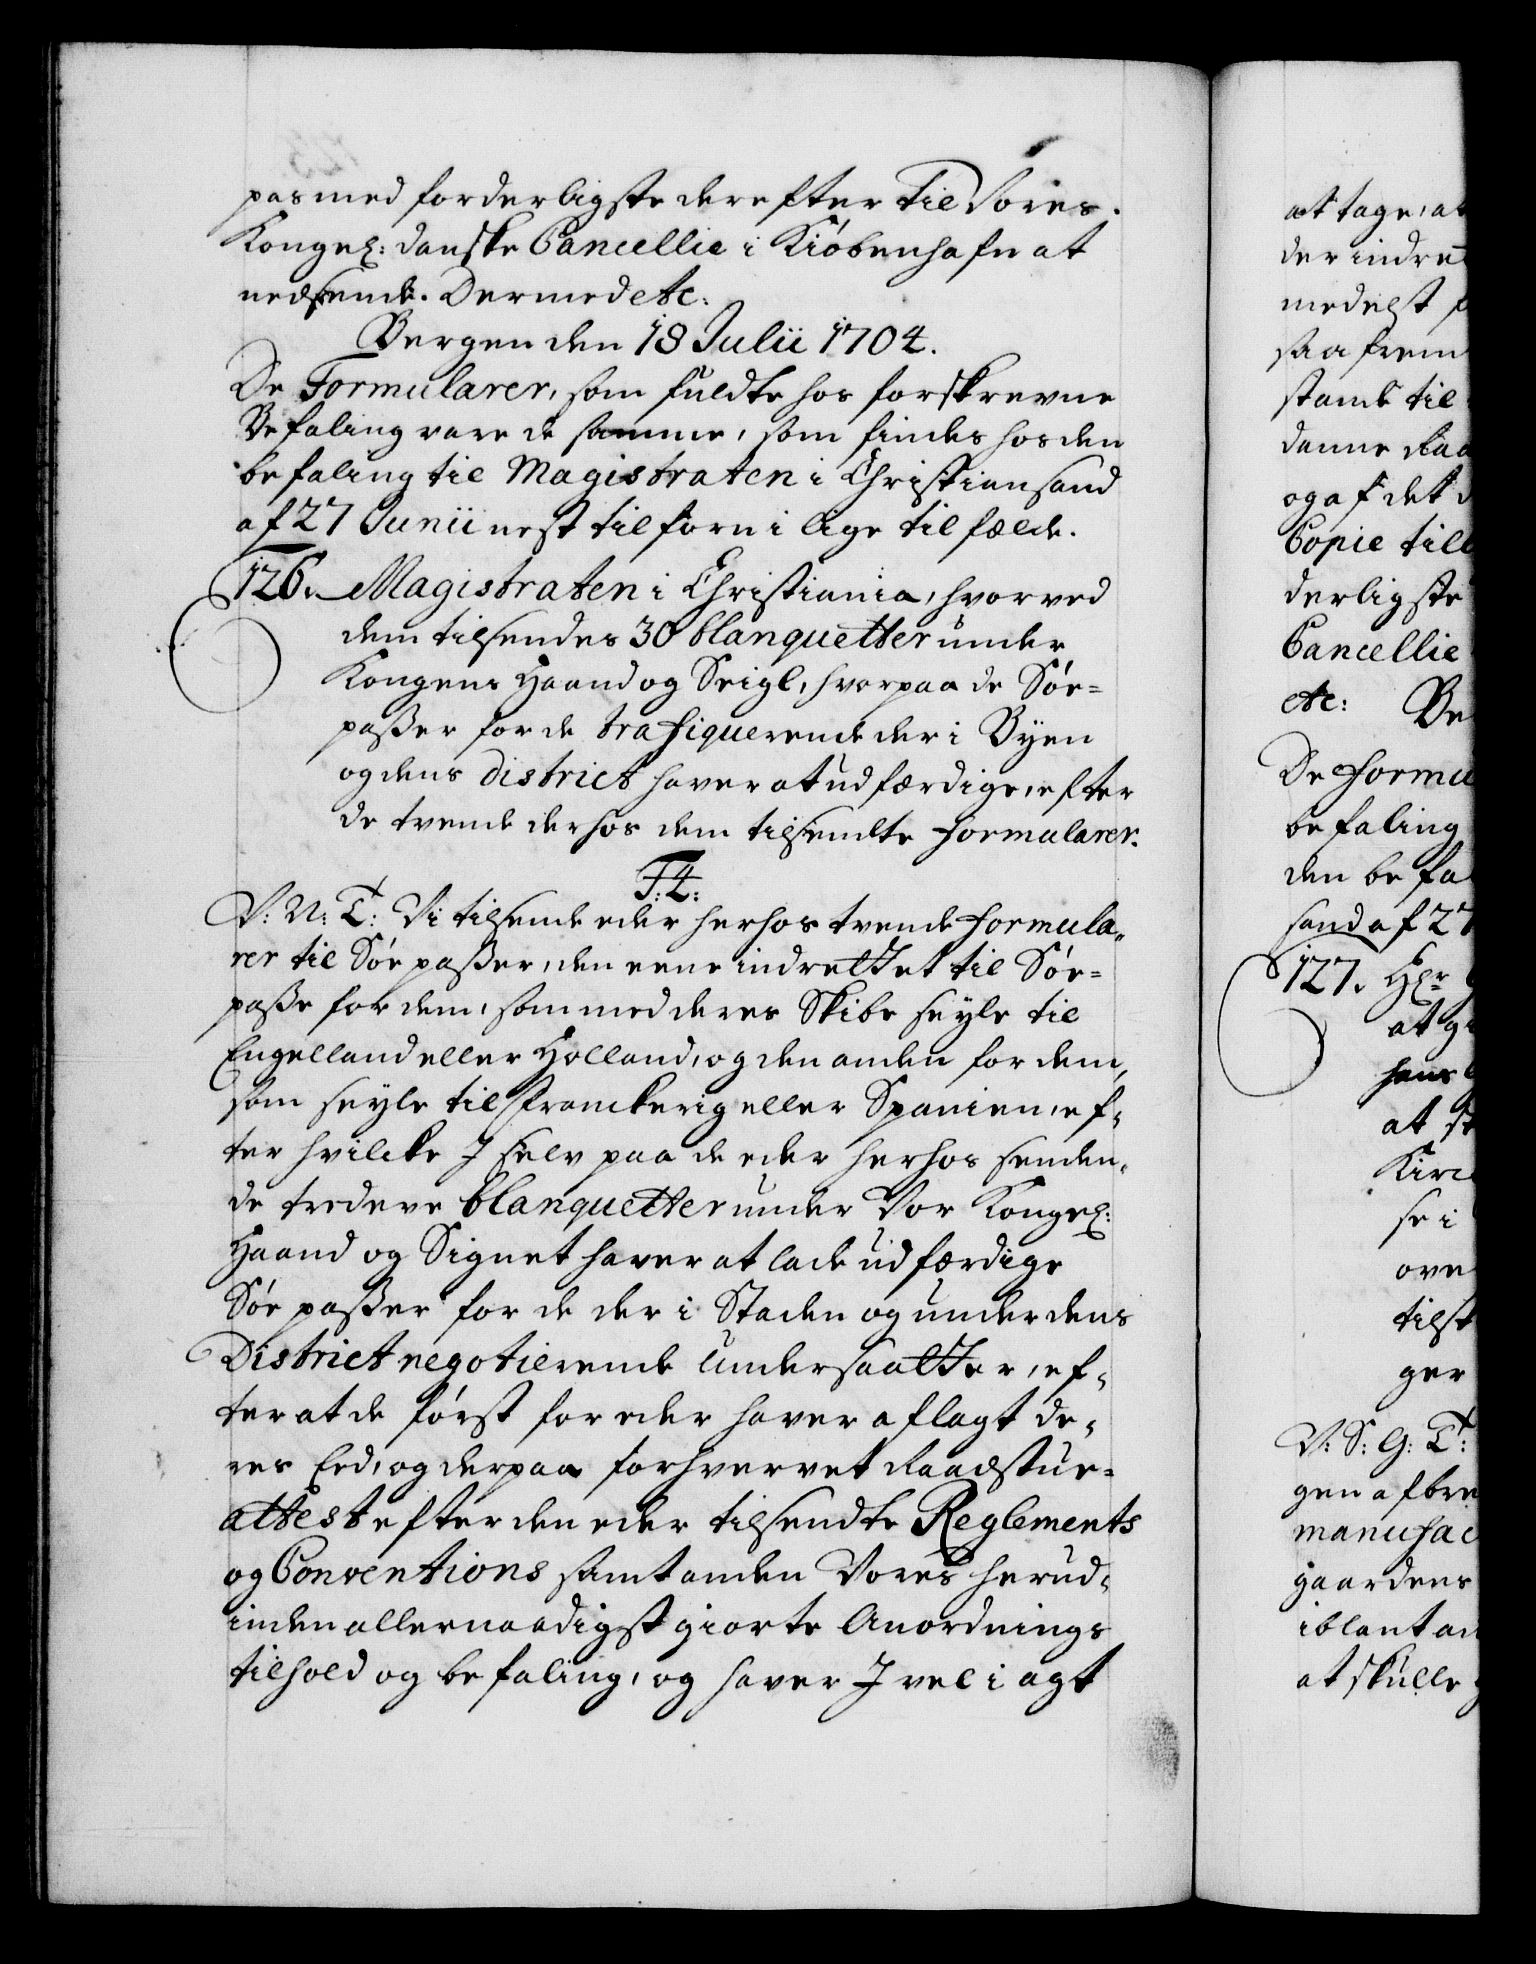 pas med forderligste derefter til Vores
Kongel: danske Cancellie i Kiöbenhafn at
nedsende. Dermed etc:
Bergen den 18 Julii 1704.
De Formularer, som fuldte hos forskrevne
Befaling vare de samme, som findes hos den
befaling til Magistraten i Christiansand
af 27 Junii nest tilforn i lige tilfælde.
126. Magistraten i Christiania, hvorved
dem tilsendes 30 blanquetter under
Kongens Haand og Seigl, hvorpaa de Söe=
passer for de trafiquerende der i Byen
og dens district haver at udfærdige, efter
de tvende derhos dem tilsendte formularer.
F: 4:
V: N: T: Vi tilsende eder herhos tvende formula,,
rer til Söe passer, den eene indrettet til Söe=
passe for dem, som med deres Skibe seyle til
Engelland eller Holland, og den anden for dem,
som seyle til Franckerig eller Spanien, ef,
ter hvilcke I selv paa de eder herhos senden,
de tredeve blanquetter under Vor Kongel:
Haand og Signet haver at lade udfærdige
Söe passer for de der i Staden og under dens
District negotierende Undersaatter, ef,
ter at de först for eder haver aflagt de,
res Eed, og derpaa forhvervet Raadstue=
attest efter den eder tilsendte Reglements
og Conventions samt anden Vores herud,
inden allernaadigst giorte Anordnings
tilhold og befaling, og haver I vel i agt
at tage, at
der indret
medelst
saa frem
stande til
danne Raa
og af det
Copie till
derligste
Cancellie
etc: Be
De formu
befaling
den befa
sand af 27
127. Hr
at g
hans
at st
Kirc
se i
ove
tilst
ger
V: S: G: T:
gen afbre
manufac
gaardens
iblant an
at skulle